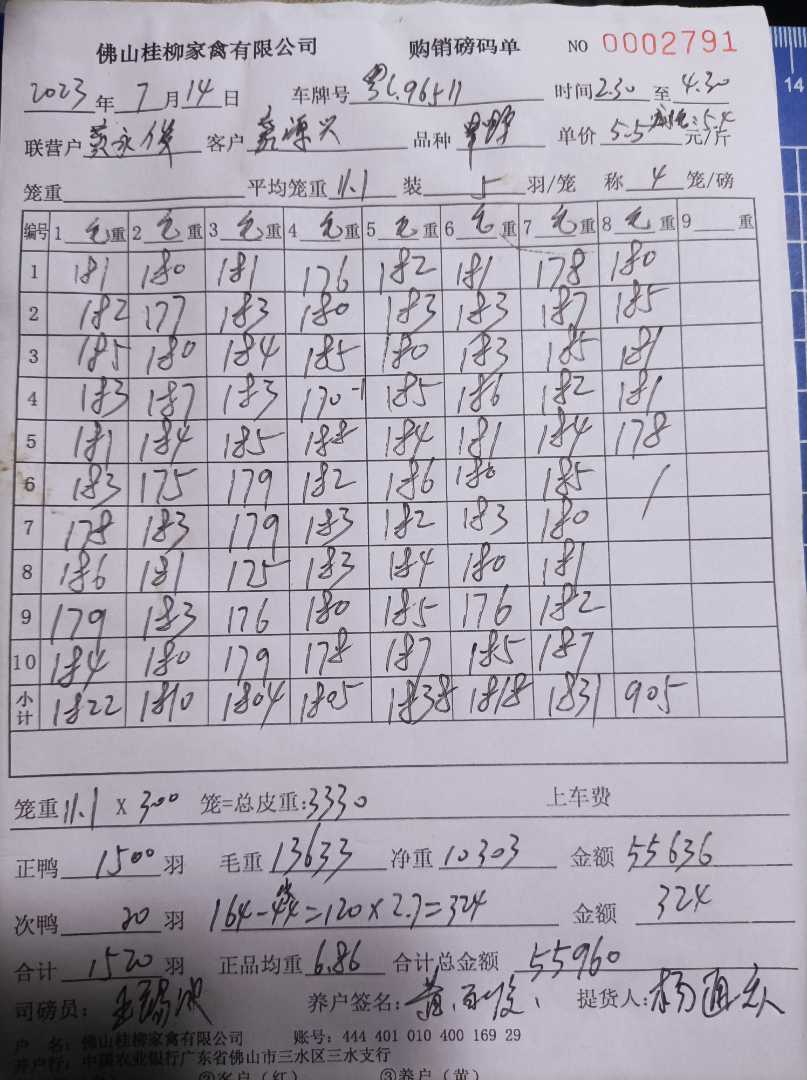 佛山桂柳家禽有限公司 购销磅码单 NO 0002791
2023年7月14日 车牌号粤L.96511 时间2.30至4.30
联营户黄永 客户嘉源兴 品种 单价5.5 5.4元/斤
笼重 平均笼重11.1 装5羽/笼 称4笼/磅
编号 1毛重 2毛重 3毛重 4毛重 5毛重 6毛重 7毛重 8毛重 9重
1 181 180 181 176 182 181 178 180
2 182 177 183 180 183 183 187 185
3 185 180 184 185 180 183 185 181
4 183 187 183 170-1 185 186 182 181
5 181 184 185 188 184 181 184 178
6 183 175 179 182 186 180 185 /
7 178 183 179 183 182 183 180
8 186 181 175 183 184 180 181
9 179 183 176 180 185 176 182
10 184 180 179 178 187 185 187
小计 1822 1810 1804 1805 1838 1818 1831 905
笼重11.1 X 300 笼=总皮重:3330 上车费
正鸭1500羽 毛重13633 净重10303 金额55636
次鸭20羽 164-44=120×2.7=324 金额324
合计1520羽 正品均重6.86 合计总金额55960
司磅员: 养户签名: 提货人:杨通
户 名:佛山桂柳家禽有限公司 账号:444 401 010 400 169 29
开户行:中国农业银行广东省佛山市三水区三水支行
②客户(红) ③养户(黄)